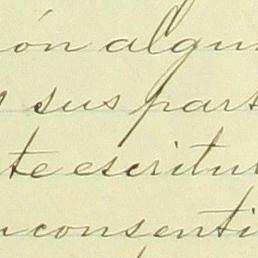 ón algun
s sus part
te escritur
consenti